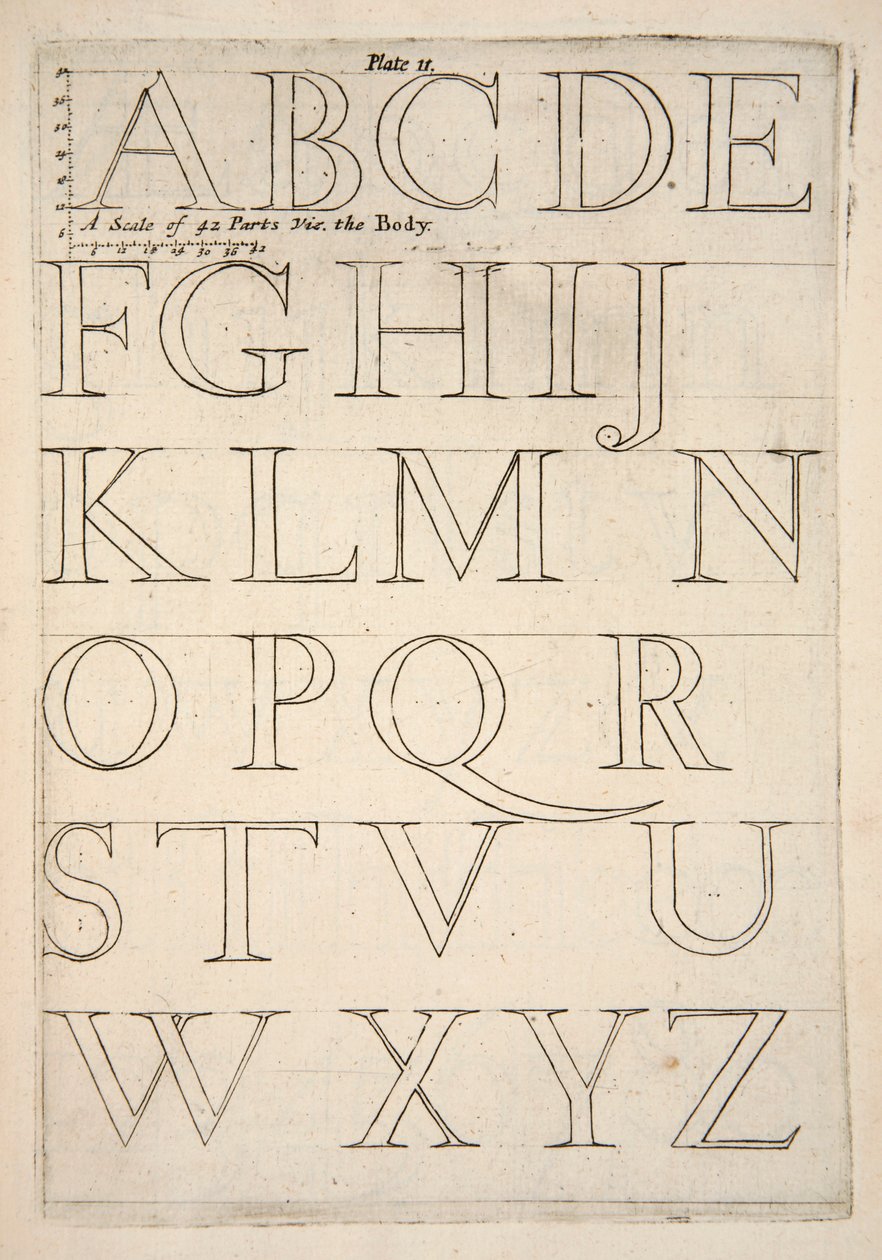 Plate 11.
42
36
30
24
18
12
6
A B C D E
A Scale of 42 Parts Viz. the Body.
6 12 18 24 30 36 42
F G H I J
K L M N
O P Q R
S T V U
W X Y Z